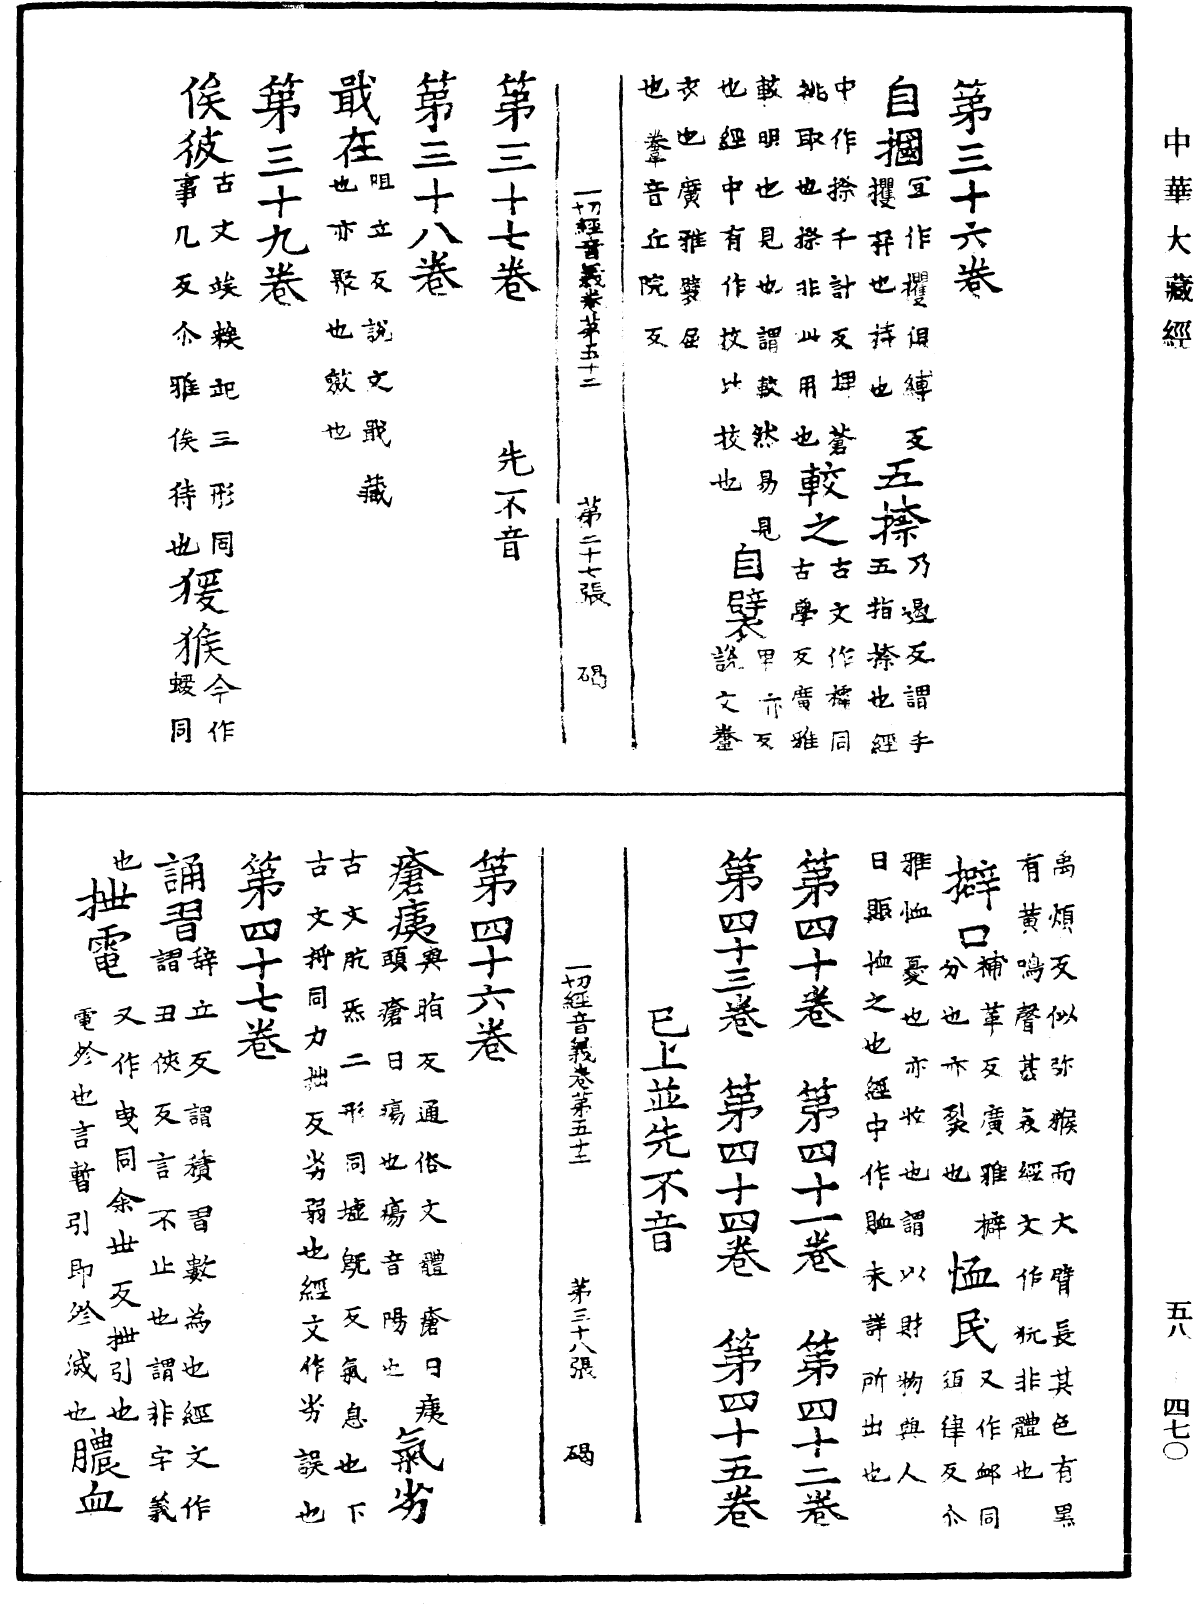 中華大藏經
五八 四七〇
第三十六卷
自摑宜作攫俱縛反攫弄也持也五捺乃過反謂手五指捺也經
中作擦千計反埤蒼挑取也擦非此用也較之古文作榷同古學反廣雅
較明也見也謂較然易見也經中有作技比技也自襞卑亦反說文韏
衣也廣雅襞屈也韏音丘院反
一切經音義卷第五十二 第二十七張 碣
第三十七卷 先不音
第三十八卷
戢在咀立反說文戢藏也亦聚也斂也
第三十九卷
俟彼古文竢𥏳𥏳三形同事几反尒雅俟待也猨猴今作蝯同
禹煩反似弥猴而大臂長其色有黑有黃鳴聲甚哀經文作㹶非體也
擗口補革反廣雅擗分也亦裂也恤民又作卹同須律反尒
雅恤憂也亦收也謂以財物與人曰賑恤之也經中作賉未詳所出也
第四十卷 第四十一卷 第四十二卷
第四十三卷 第四十四卷 第四十五卷
已上並先不音
一切經音義卷第五十二 第三十八張 碣
第四十六卷
瘡痍與脂反通俗文體瘡曰痍頭瘡曰瘍也瘍音陽也氣劣
古文炁二形同墟旣反氣息也下古文㧳同力拙反劣弱也經文作劣誤也
第四十七卷
誦習辞立反謂積習數為也經文作謂丑俠反言不止也謂非字義
也抴電又作曳同余世反抴引也電殄也言暫引即殄滅也膿血